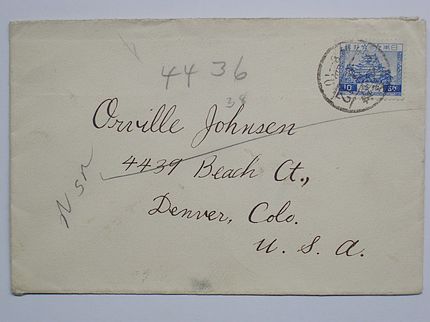 4436
38
Orville Johnsen
4439 Beach Ct.,
Denver, Colo.
U. S. A.
NSN
10